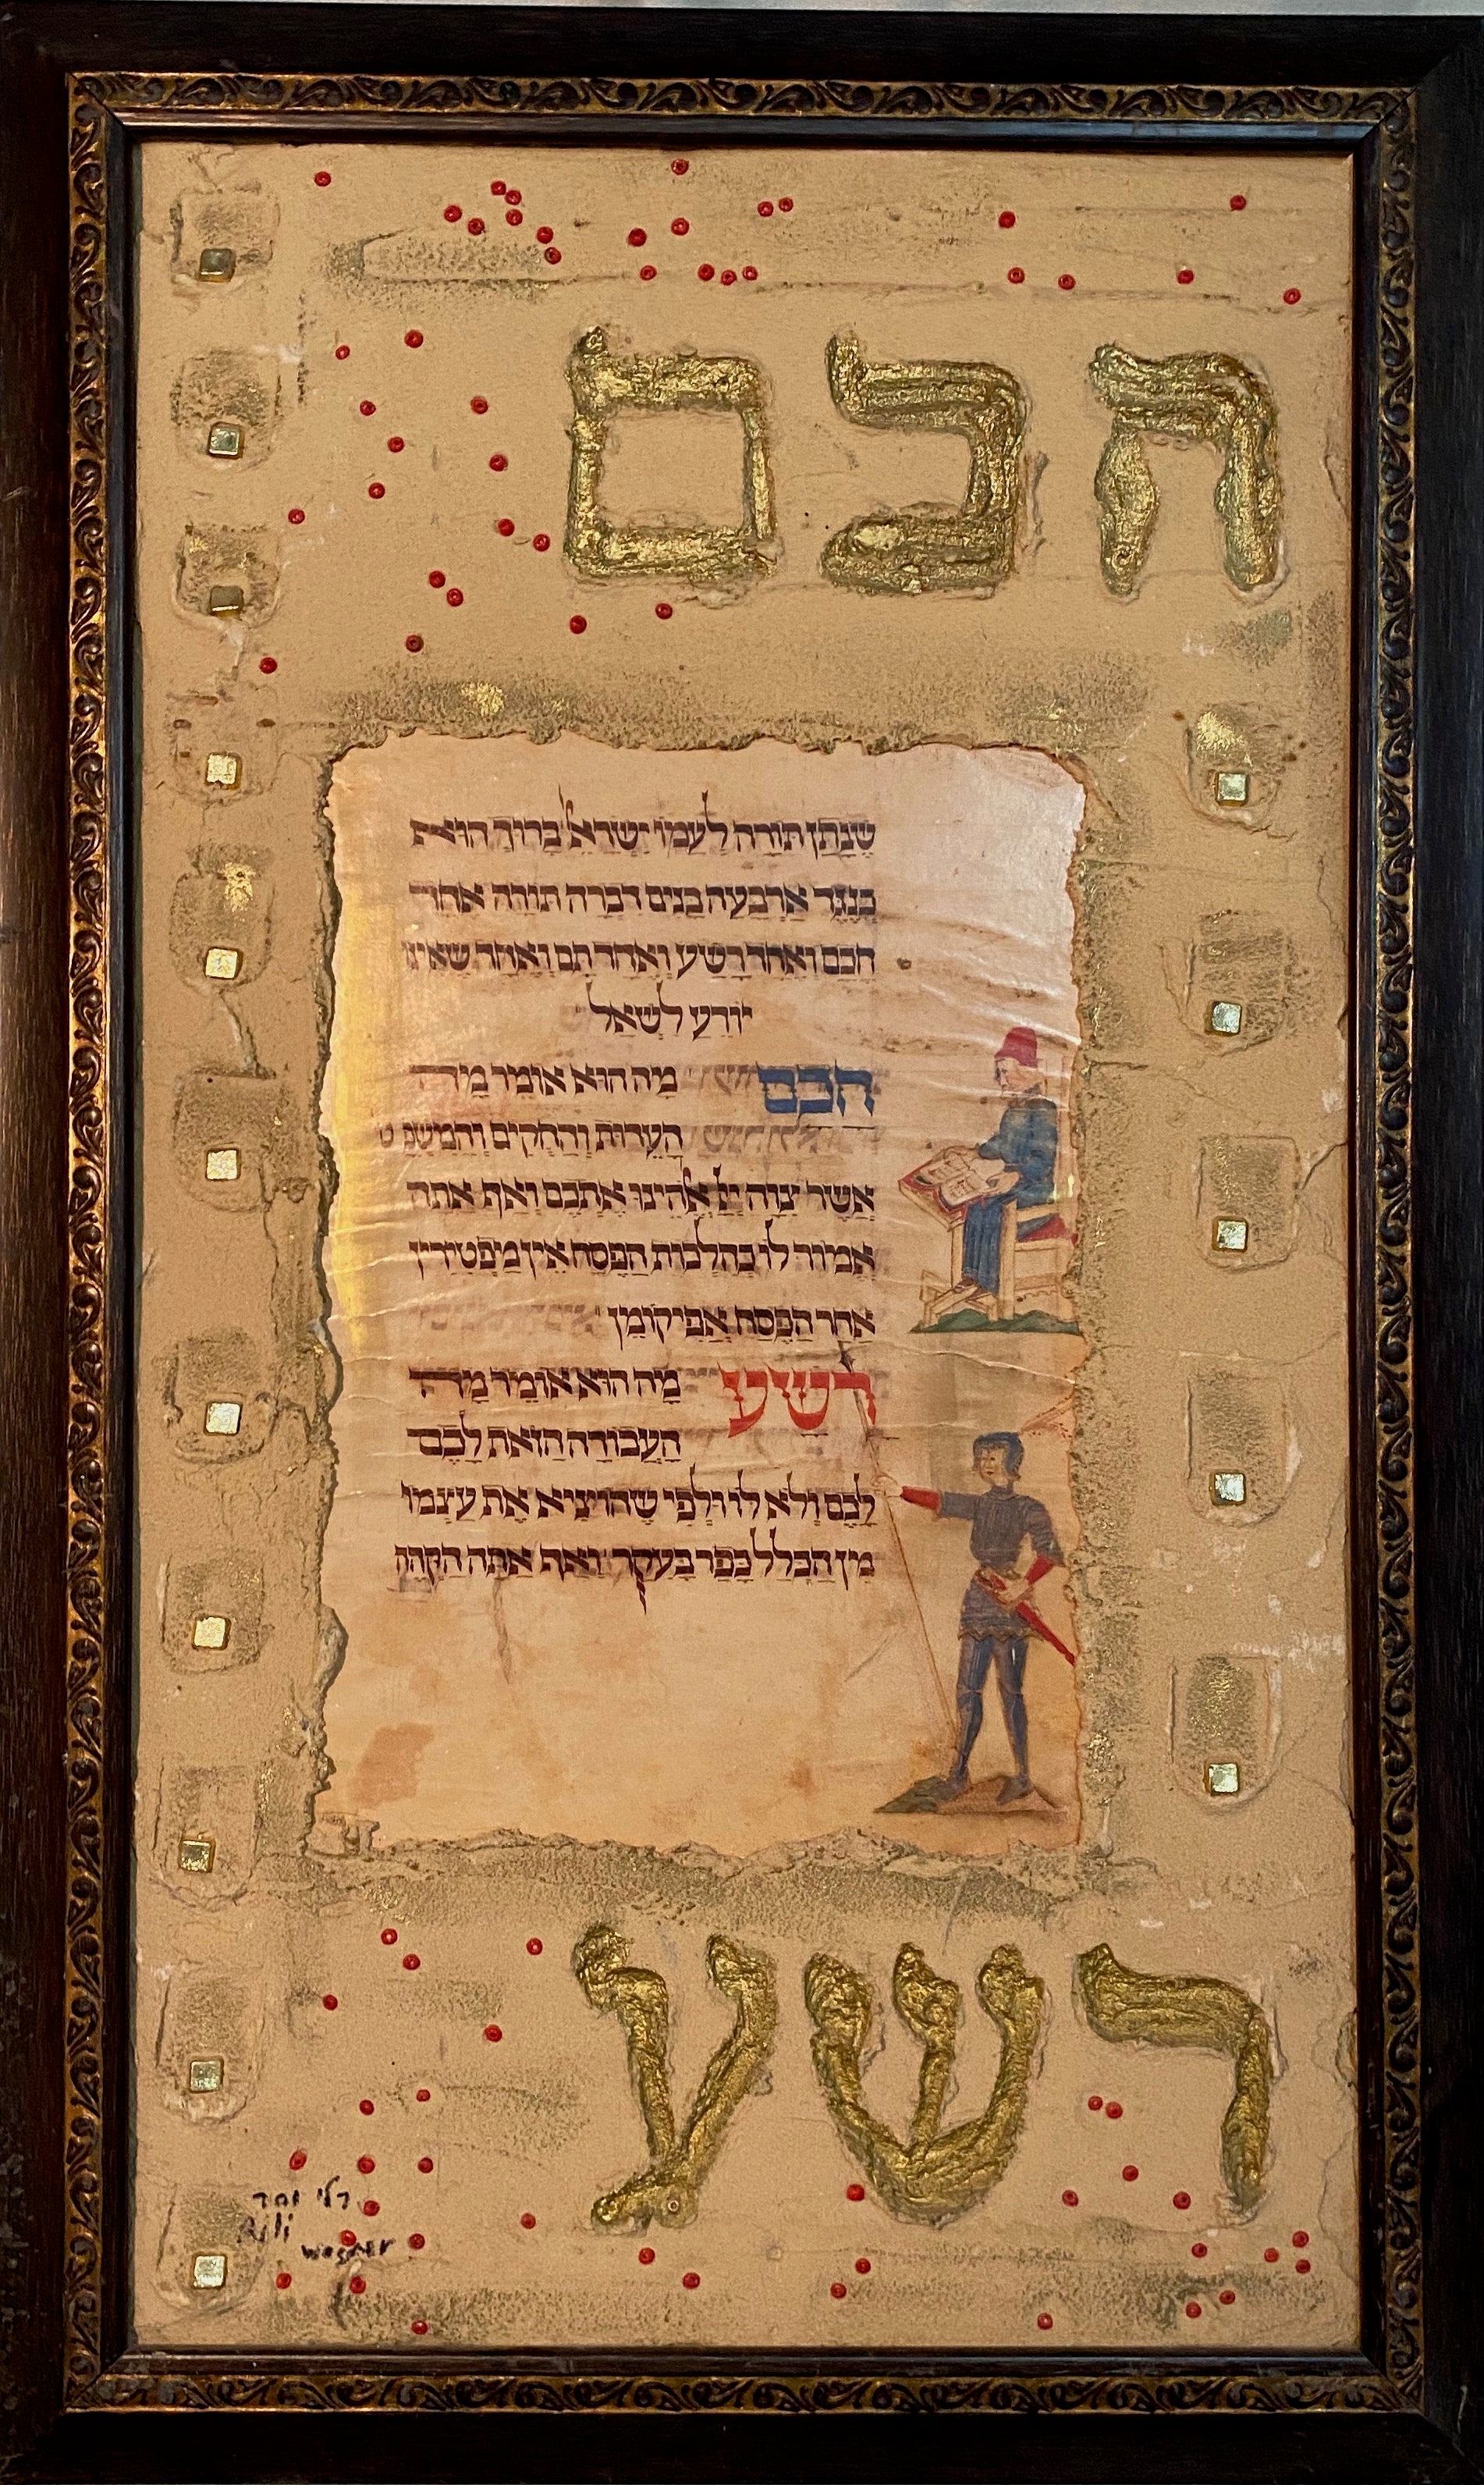 חכם
שֶׁנָתַן תּוֹרָה לְעַמּוֹ יִשְׂרָאֵל בָּרוּךְ הוּא
כְּנֶגֶד אַרְבָּעָה בָנִים דִבְּרָה תוֹרָה אחד
חָכָם וְאֶחָד רָשָׁע וְאֶחָד תָּם וְאֶחָד שֶׁאֵינוֹ
יוֹדֵעַ לִשְׁאַל
חכם מַה הוּא אוֹמֵר מַה
הָעֵדוּת וְהַחֻקִים וְהַמִשְׁפָּט
אֲשֶׁר צִוָּה יְיָ אֱלֹהֵינוּ אֶתְכֶם וְאַף אַתָּה
אֱמוֹר לוֹ כְּהִלְכוֹת הַפֶּסַח אֵין מַפְטִירִין
אַחַר הַפֶּסַח אֲפִיקוֹמָן
רשע מַה הוּא אוֹמֵר מָה
הָעֲבוֹדָה הַזֹּאת לָכֶם
לָכֶם וְלֹא לוֹ וּלְפִי שֶׁהוֹצִיא אֶת עַצְמוֹ
מִן הַכְּלָל כָּפַר בָּעִקָּר וְאַף אַתָּה הַקְהֵה
רשע
Rili
wagner